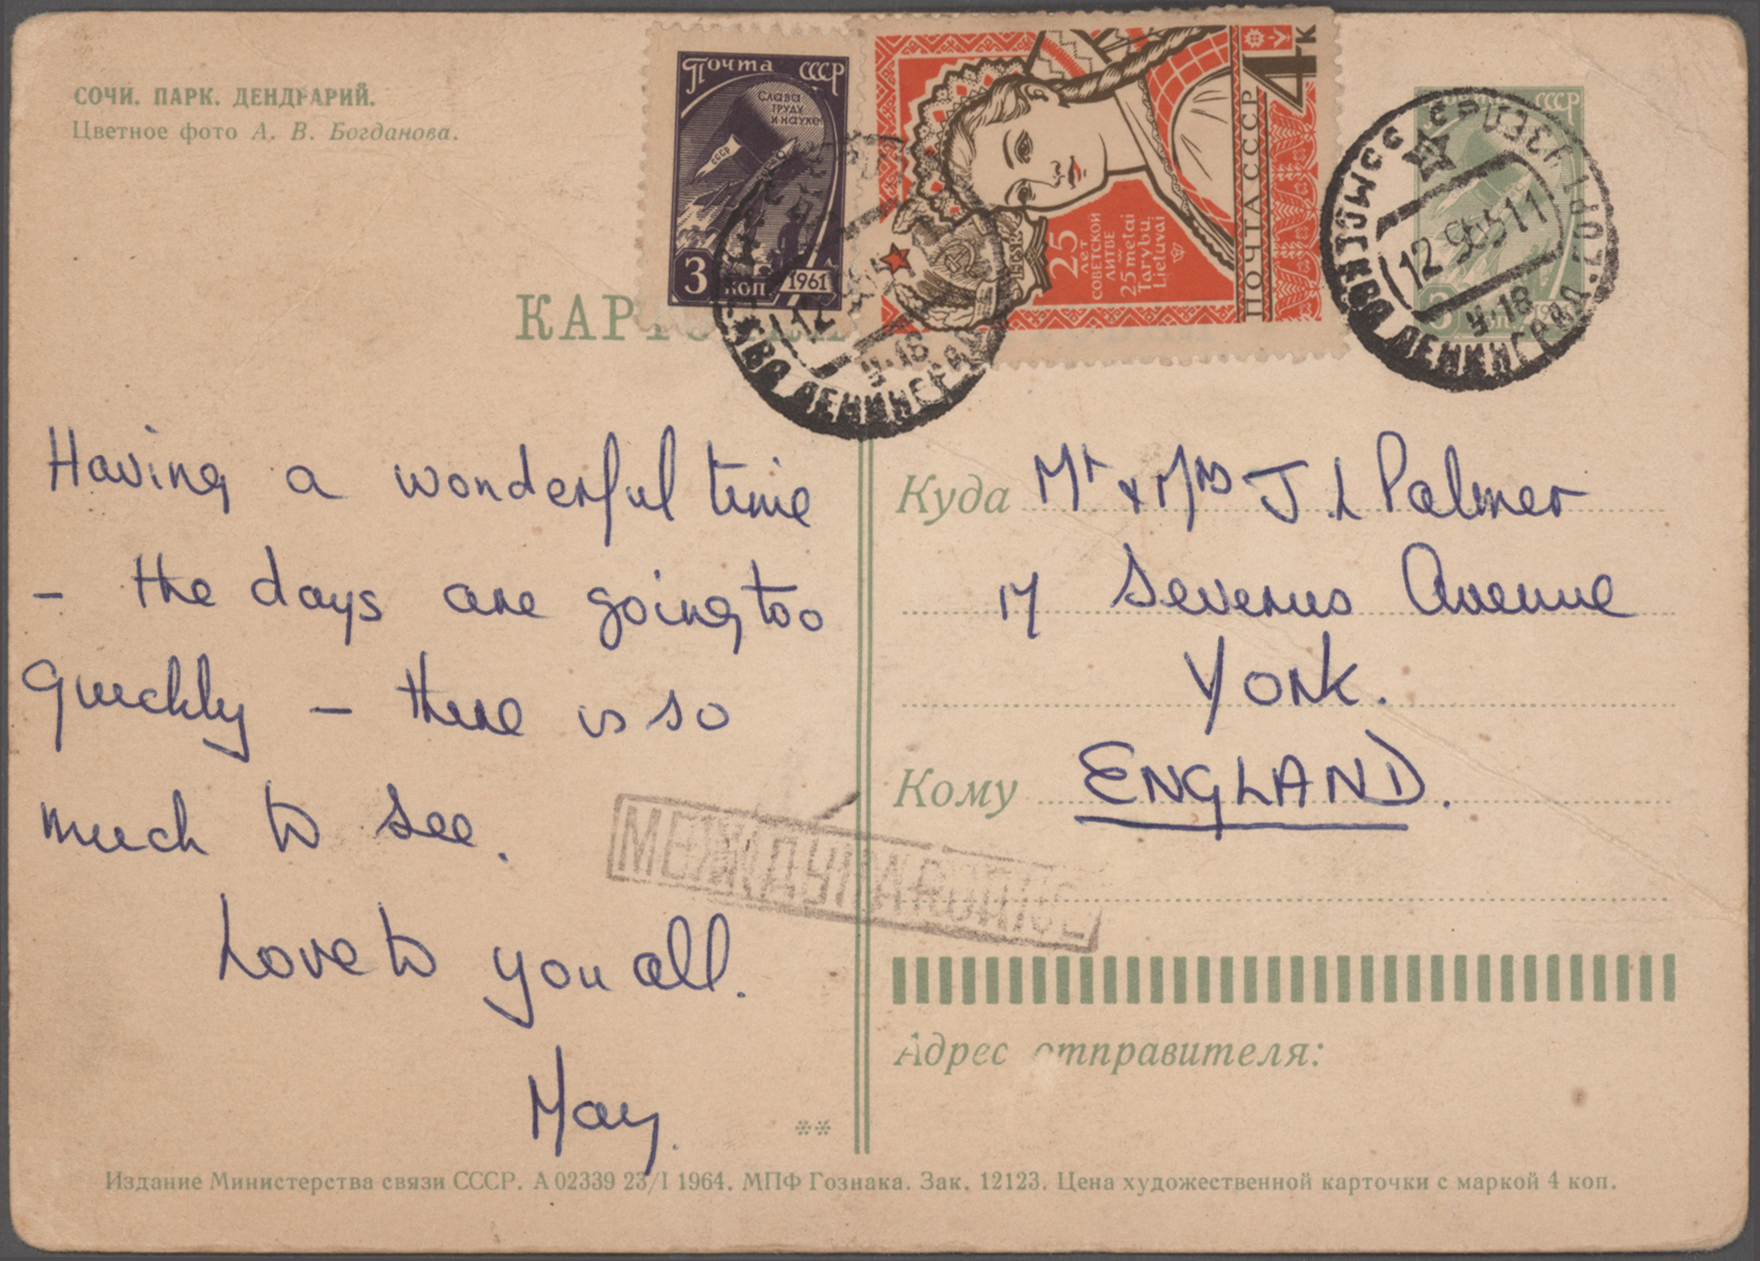 СОЧИ. ПАРК. ДЕНДРАРИЙ.
Цветное фото А. В. Богданова.
Почта СССР
Слава
труду
и науке
СССР
3 коп.
1961
4к
ПОЧТА СССР
25
лет
СОВЕТСКОЙ
ЛИТВЕ
25 metai
Tarybų
Lietuvai
СССР
12 9 65 11
Ч-18
ЛЕНИНГРАД
Ч-18
ЛЕНИНГРАД
Having a wonderful time
- the days are going too
quickly - there is so
much to see.
Love to you all.
May.
Куда Mr & Mrs J. L Palmer
17 Severus Avenue
York.
Кому ENGLAND.
МЕЖДУНАРОДНОЕ
Адрес отправителя:
**
Издание Министерства связи СССР. А 02339 23/I 1964. МПФ Гознака. Зак. 12123. Цена художественной карточки с маркой 4 коп.